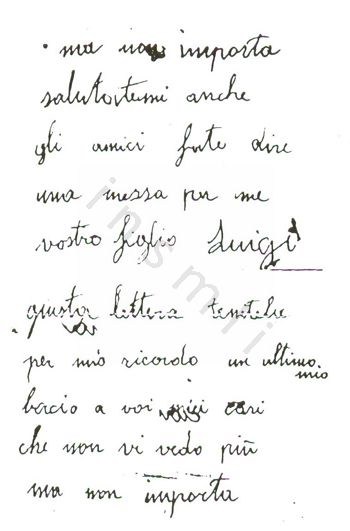 ma non importa
salutatemi anche
gli amici fate dire
una messa per me
vostro figlio Luigi
questa lettera tenetele
voi
per mio ricordo un ultimo
mio
bacio a voi miei cari
che non vi vedo più
ma non importa
insmli